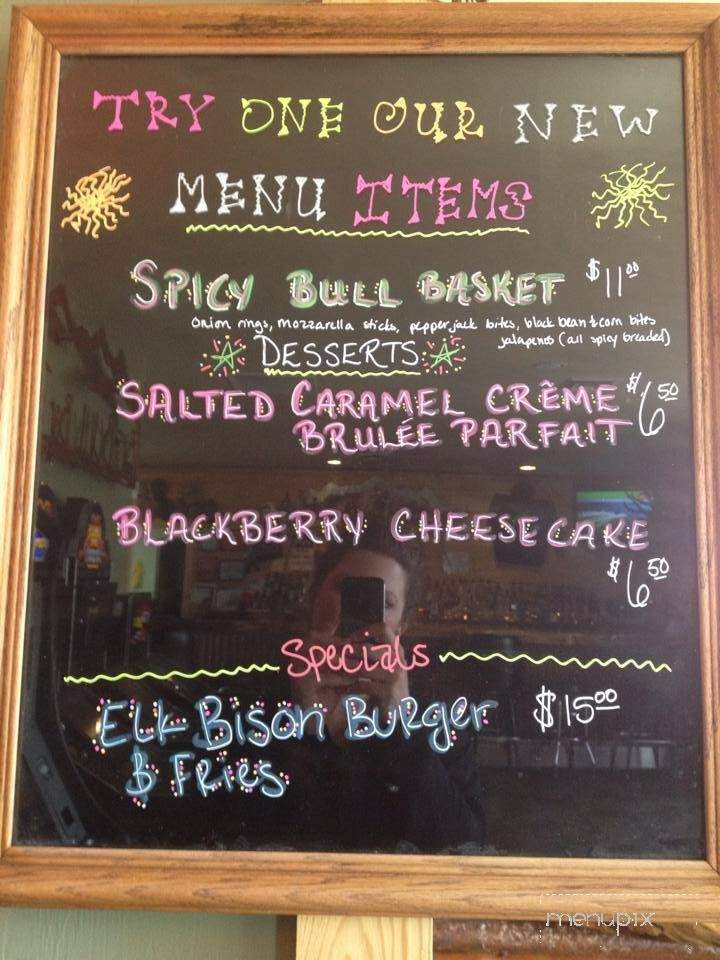 TRY ONE OUR NEW
MENU ITEMS
SPICY BULL BASKET $11.00
onion rings, mozzarella sticks, pepperjack bites, black bean & corn bites
jalapenos (all spicy breaded)
DESSERTS
SALTED CARAMEL CRÊME $6.50
BRULÉE PARFAIT
BLACKBERRY CHEESECAKE
$6.50
Specials
ELK BISON BURGER $15.00
& FRIES
menupix